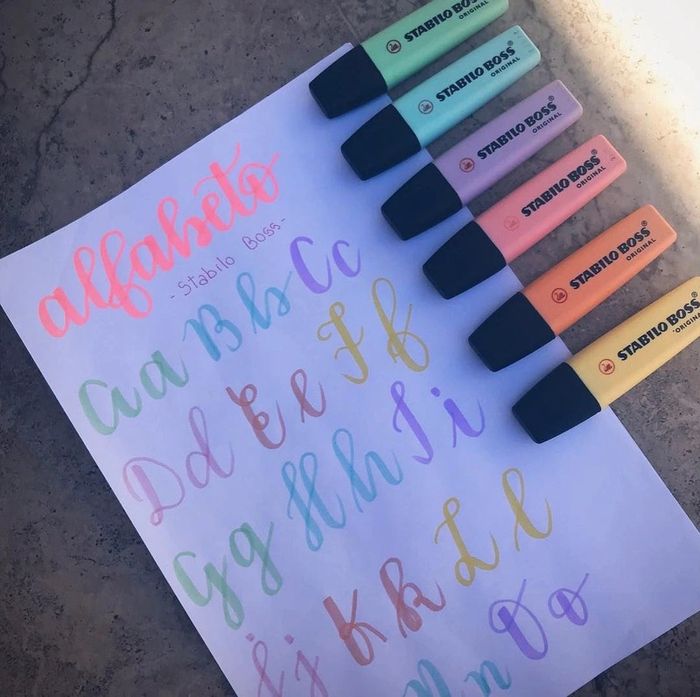 alfabeto
- Stabilo Boss -
Aa Bb Cc
Dd Ee Ff
Gg Hh Ii
Jj Kk Ll
Nn Oo
STABILO BOSS®
ORIGINAL
STABILO BOSS®
ORIGINAL
STABILO BOSS®
ORIGINAL
STABILO BOSS®
ORIGINAL
STABILO BOSS®
ORIGINAL
STABILO BOSS®
ORIGINAL